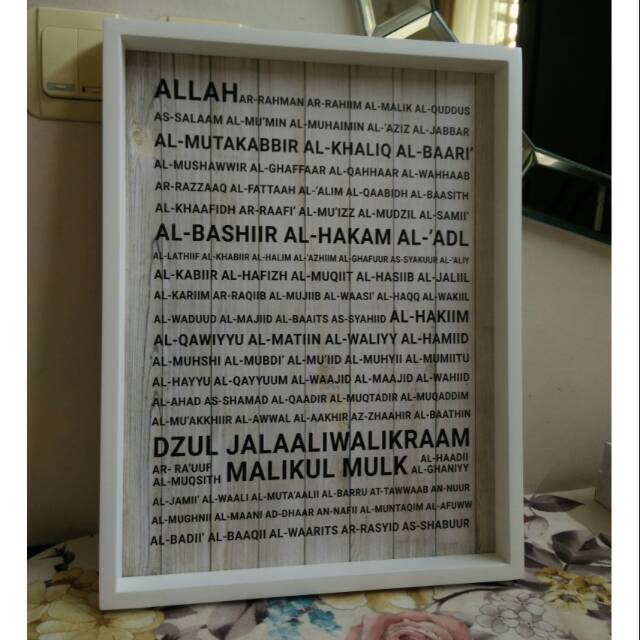 ALLAH AR-RAHMAN AR-RAHIIM AL-MALIK AL-QUDDUS
AS-SALAAM AL-MU'MIN AL-MUHAIMIN AL-'AZIZ AL-JABBAR
AL-MUTAKABBIR AL-KHALIQ AL-BAARI'
AL-MUSHAWWIR AL-GHAFFAAR AL-QAHHAAR AL-WAHHAAB
AR-RAZZAAQ AL-FATTAAH AL-'ALIM AL-QAABIDH AL-BAASITH
AL-KHAAFIDH AR-RAAFI' AL-MU'IZZ AL-MUDZIL AL-SAMII'
AL-BASHIIR AL-HAKAM AL-'ADL
AL-LATHIIF AL-KHABIIR AL-HALIM AL-'AZHIIM AL-GHAFUUR AS-SYAKUUR AL-'ALIY
AL-KABIIR AL-HAFIZH AL-MUQIIT AL-HASIIB AL-JALIIL
AL-KARIIM AR-RAQIIB AL-MUJIIB AL-WAASI' AL-HAQQ AL-WAKIIL
AL-WADUUD AL-MAJIID AL-BAAITS AS-SYAHIID AL-HAKIIM
AL-QAWIYYU AL-MATIIN AL-WALIYY AL-HAMIID
AL-MUHSHI AL-MUBDI' AL-MU'IID AL-MUHYII AL-MUMIITU
AL-HAYYU AL-QAYYUUM AL-WAAJID AL-MAAJID AL-WAHIID
AL-AHAD AS-SHAMAD AL-QAADIR AL-MUQTADIR AL-MUQADDIM
AL-MU'AKKHIIR AL-AWWAL AL-AAKHIR AZ-ZHAAHIR AL-BAATHIN
DZUL JALAALIWALIKRAAM
AR- RA'UUF
AL-MUQSITH
MALIKUL MULK
AL-HAADII
AL-GHANIYY
AL-JAMII' AL-WAALI AL-MUTA'AALII AL-BARRU AT-TAWWAAB AN-NUUR
AL-MUGHNII AL-MAANI AD-DHAAR AN-NAFII AL-MUNTAQIM AL-AFUWW
AL-BADII' AL-BAAQII AL-WAARITS AR-RASYID AS-SHABUUR